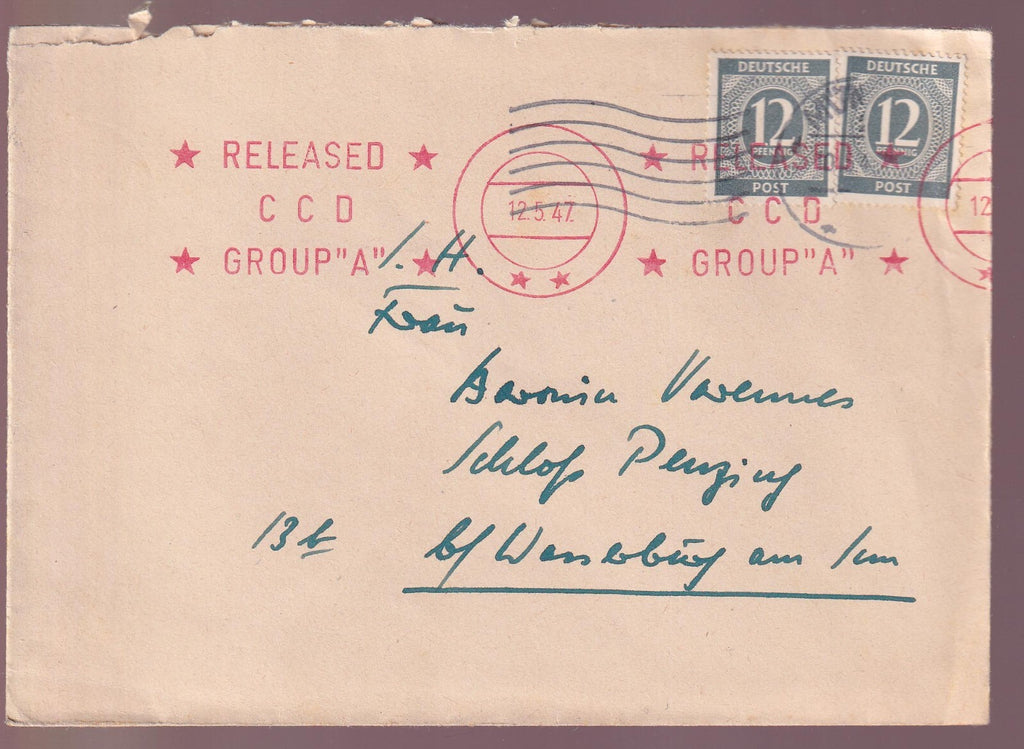 DEUTSCHE DEUTSCHE
12 12
PFENNIG PFENNIG
POST POST
★ RELEASED ★ ★ RELEASED ★
C C D C C D
★ GROUP"A" ★ ★ GROUP"A" ★
12.5.47. 12
I. H.
Frau
Baronin Varennes
Schloß Penzing
13b b/ Wasserburg am Inn